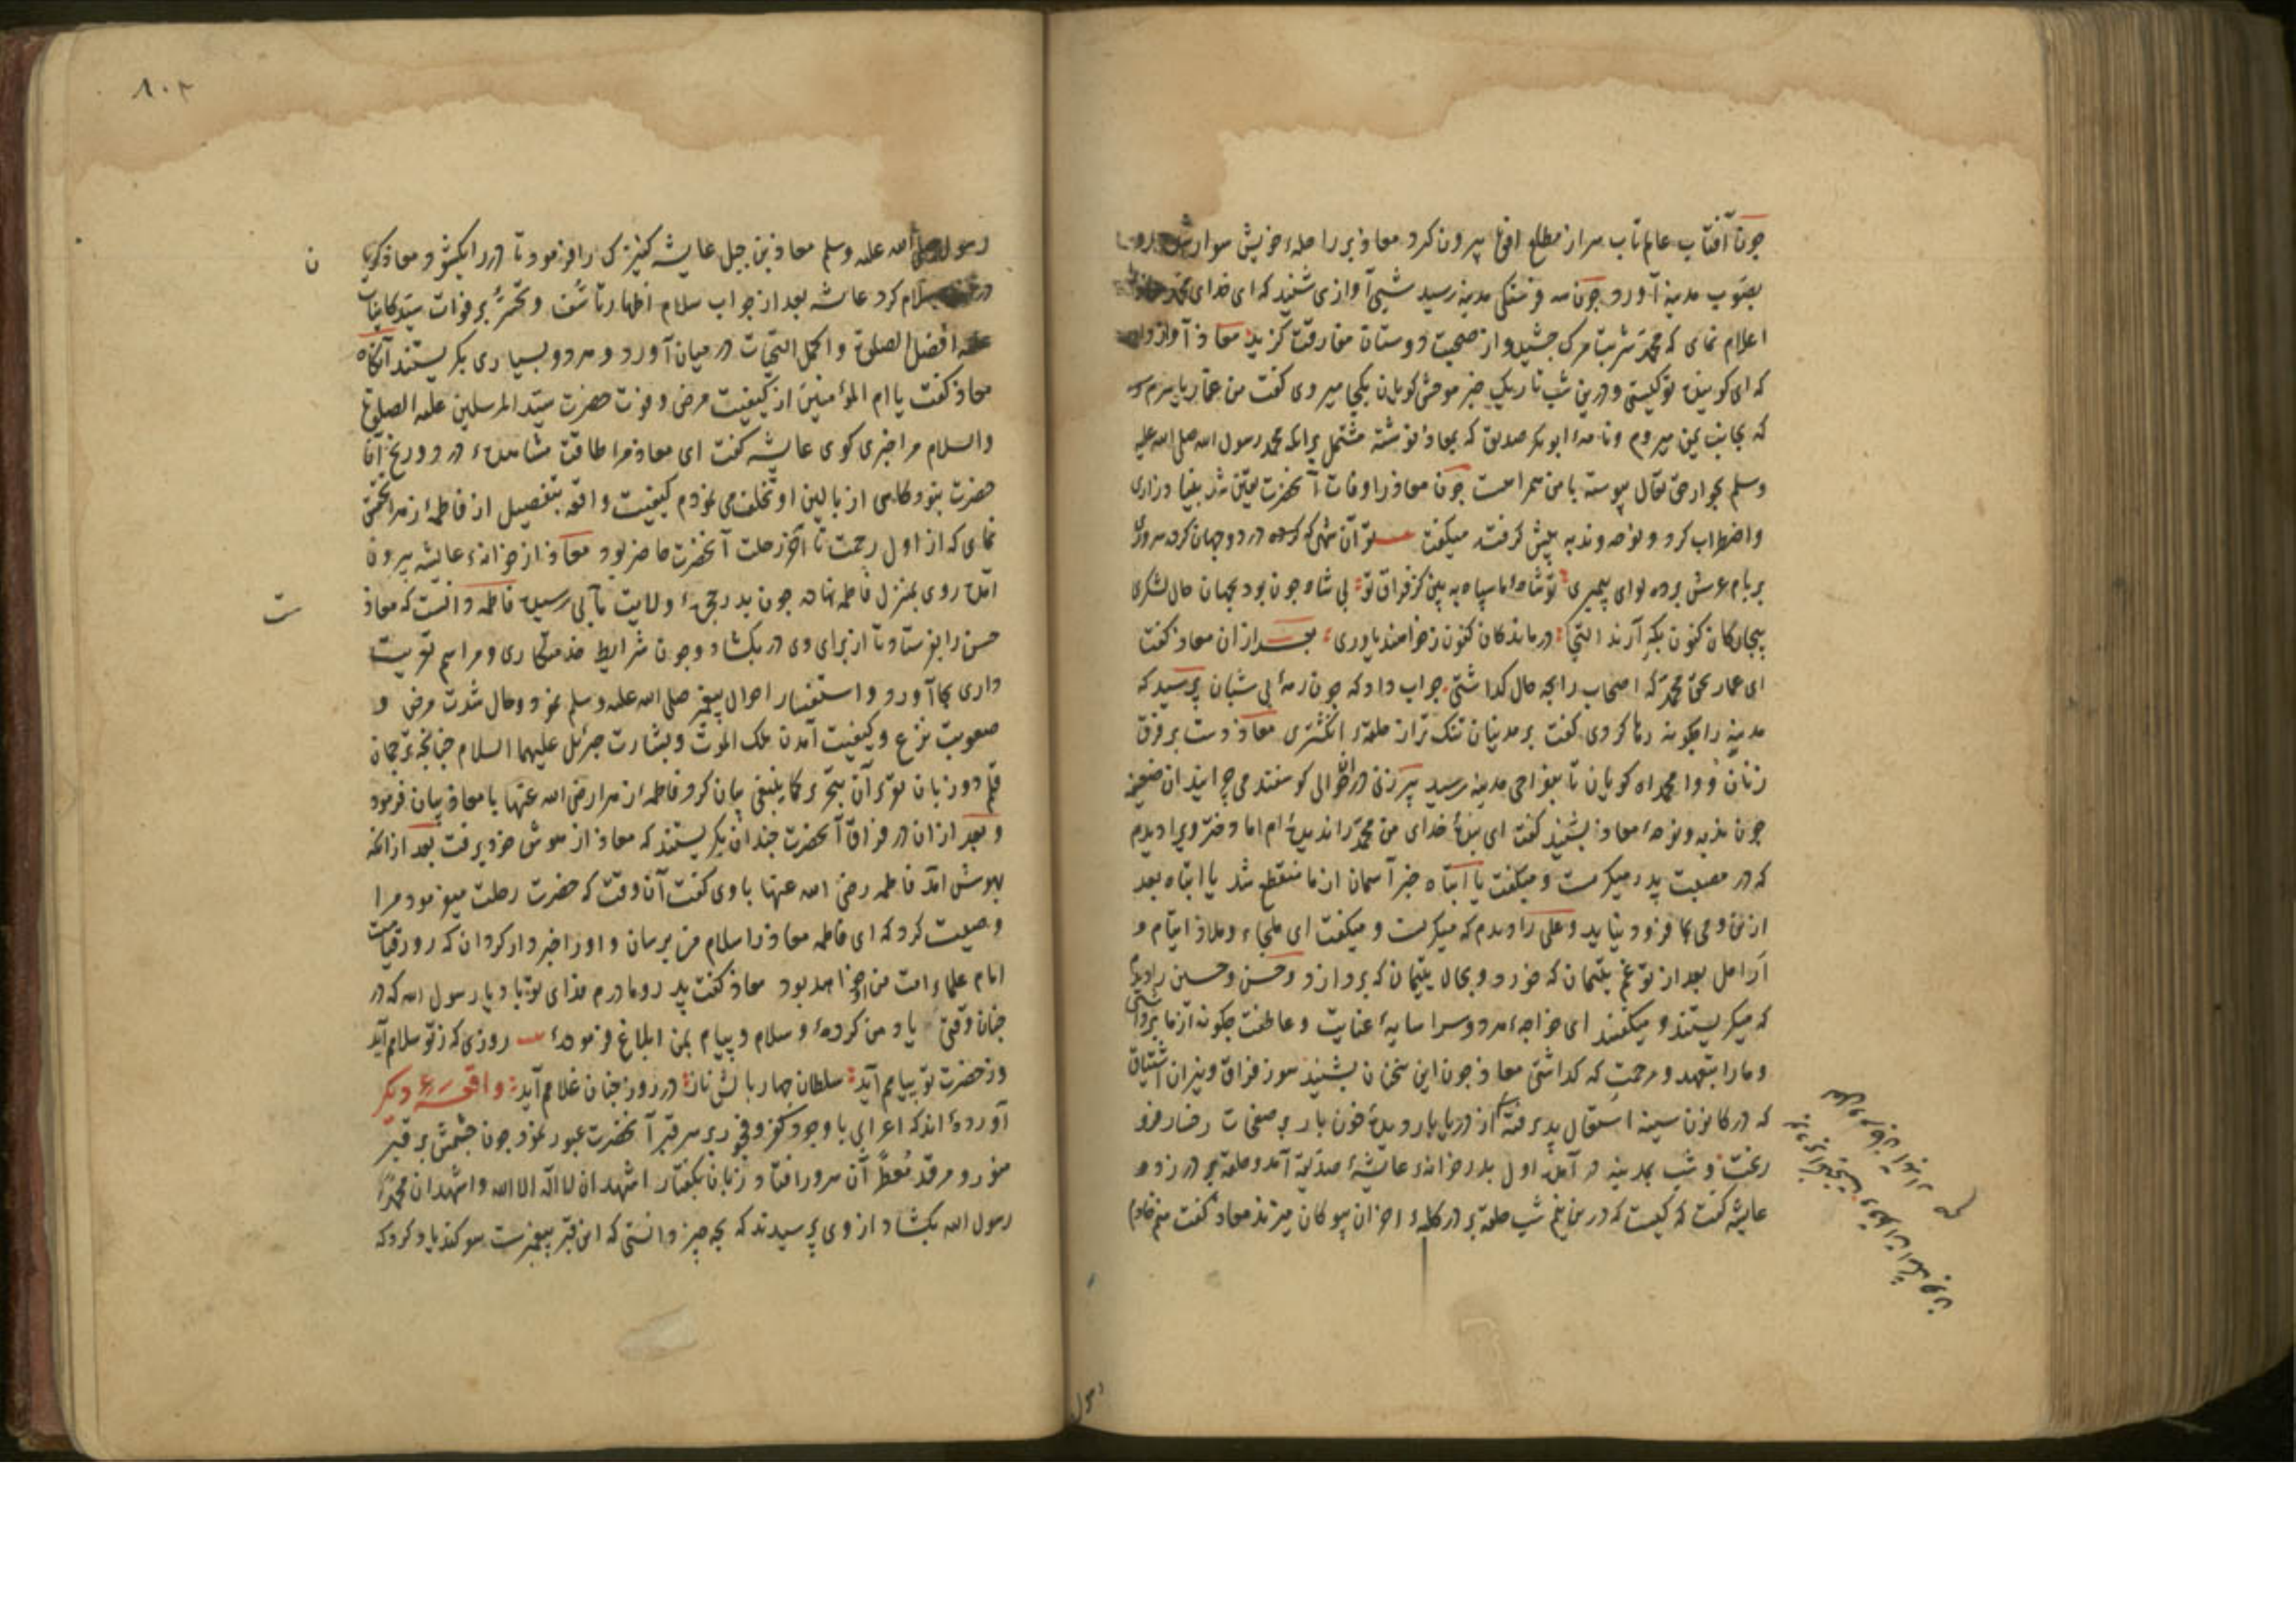 چون آفتاب عالم تاب سر از مطلع افق بیرون کرد معاذ بر راحلهٔ خویش سوار شد
بصوب مدینه آورد چون سه فرسنکی مدینه رسید شبی آوازی شنید که ای خدای محمد
اعلام نمای که محمد شربت مرک چشید و از صحبت دوستان مفارقت کزید معاذ آواز داد
که ای کوینده تو کیستی و درین شب تاریک خبر موحش کویان بکجا میروی کفت من عمار یاسرم
که بجانب یمن میروم و نامهٔ ابو بکر صدیق که بمعاذ نوشته مشتمل برانکه محمد رسول الله صلی الله علیه
وسلم بجوار حق تعالی پیوسته با من همراهست چون معاذ را وفات آنحضرت یقین شد بغایت زاری
و اضطراب کرد و نوحه و ندبه پیش کرفت میکفت تو آن شهی که کرده در دو جهان کرده سروری
بر بام عرش برده لوای پیمبری تو شاه ما سپاه ببین کز فراق تو بی شاه چون بود بجهان حال لشکری
بیچارکان کنون بکه آرند التجا درماندکان کنون ز که خواهند یاوری بعد از ان معاذ کفت
ای عمار بحق محمد که اصحاب را بچه حال کذاشتی جواب داد که چون رمهٔ بی شبان پرسید که
مدینه را چکونه رها کردی کفت بر مدنیان تنک تر از حلقهٔ انکشتری معاذ دست بر فرق
زنان و وا محمداه کویان تا بنواحی مدینه رسید پیر زنی در ان حوالی کوسفند می چرانید ان ضعیفه
چون ندبه و نوحهٔ معاذ بشنید کفت ای بندهٔ خدای من محمد را ندیده ام اما دختر ویرا دیدم
که در مصیبت پدر میکریست و میکفت یا ابتاه خبر آسمان از ما منقطع شد یا ابتاه بعد
ازین وحی بما فرود نیاید و علی را دیدم که میکریست و میکفت ای ملجاء و ملاذ ایتام و
ارامل بعد از تو غم یتیمان که خورد و بحال یتیمان که پردازد و حسن و حسین را دیدم
که میکریستند و میکفتند ای خواجهٔ هر دو سرا سایهٔ عنایت و عاطفت چکونه از ما برداشتی
و ما را بتعهد و مرحمت که کذاشتی معاذ چون این سخنان بشنید سوز فراق و نیران اشتیاق
که در کانون سینه اشتعال پذیرفته از دریا بار دیدهٔ خون بار بر صفحات رخسار فرو
ریخت و شب بمدینه در آمد اول بدر خانهٔ عایشهٔ صدیقه آمد و حلقه بر در زد
عایشه کفت که کیست که درین نیم شب حلقه بر در کلبهٔ احزان بیوکان میزند معاذ کفت منم خادم
رسول
۸۰۲
رسول صلی الله علیه وسلم معاذ بن جبل عایشه کنیزکی را فرمود تا در را بکشود و معاذ
سلام کرد عایشه بعد از جواب سلام اظهار تاسف و تحسر بر فوات سید کاینات
علیه افضل الصلوة و اکمل التحیات در میان آورد و هر دو بسیاری بکریستند آنکاه
معاذ کفت یا ام المؤمنین از کیفیت مرض و فوت حضرت سید المرسلین علیه الصلوة
والسلام مرا خبری کوی عایشه کفت ای معاذ مرا طاقت مشاهدهٔ درد و رنج آن
حضرت نبود کاهی از بالین او تخلف می نمودم کیفیت واقعه بتفصیل از فاطمهٔ زهرا تحقیق
نمای که از اول زحمت تا آخر رحلت آنحضرت حاضر بود معاذ از خانهٔ عایشه بیرون
آمده روی بمنزل فاطمه نهاد چون بدر حجرهٔ ولایت مآبی رسید فاطمه دانست که معاذ
حسن را بفرستاد تا از برای وی در بکشاد و چون شرایط خدمتکاری و مراسم تعزیت
داری بجا آورد و استفسار احوال پیغمبر صلی الله علیه وسلم نمود و حال شدت مرض و
صعوبت نزع و کیفیت آمدن ملک الموت و بشارت جبرئیل علیهما السلام چنانچه ترجمان
قلم دو زبان تقریر آن بتحریر کما ینبغی بیان کرد فاطمهٔ زهرا رضی الله عنها با معاذ بیان فرمود
و بعد از ان در فراق آنحضرت چندان بکریستند که معاذ از هوش خود برفت بعد از انکه
بهوش آمد فاطمه رضی الله عنها با وی کفت آن وقت که حضرت رحلت میفرمود مرا
وصیت کرد که ای فاطمه معاذ را سلام من برسان و او را خبردار کردان که روز قیامت
امام علماء امت من او خواهد بود معاذ کفت پدر و مادرم فدای تو باد یا رسول الله که در
چنان وقتی یاد من کردهٔ و سلام و پیام بمن ابلاغ فرمودهٔ روزی که ز تو سلامم آید
وز حضرت تو پیامم آید سلطان چهار بالش ناز در روز چنان غلامم آید واقعهٔ دیکر
آورده اند که اعرابی با وجود کفر و فجور بر سر قبر آنحضرت عبور نمود چون چشمش بر قبر
منور و مرقد معطر آن سرور افتاد زبان بکفتار اشهد ان لا اله الا الله و اشهد ان محمدا
رسول الله بکشاد از وی پرسیدند که بچه چیز دانستی که این قبر پیغمبرست سوکند یاد کرد که